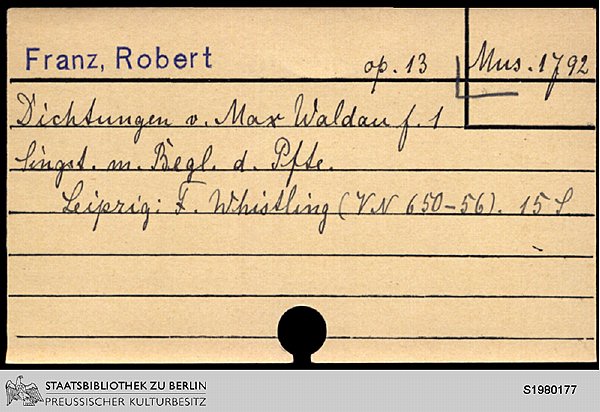 Franz, Robert op. 13 Mus. 1792
Dichtungen v. Max Waldau f. 1
Singst. m. Begl. d. Pfte.
Leipzig: F. Whistling (VN 650-56). 15 S.
STAATSBIBLIOTHEK ZU BERLIN
PREUSSISCHER KULTURBESITZ
S1980177